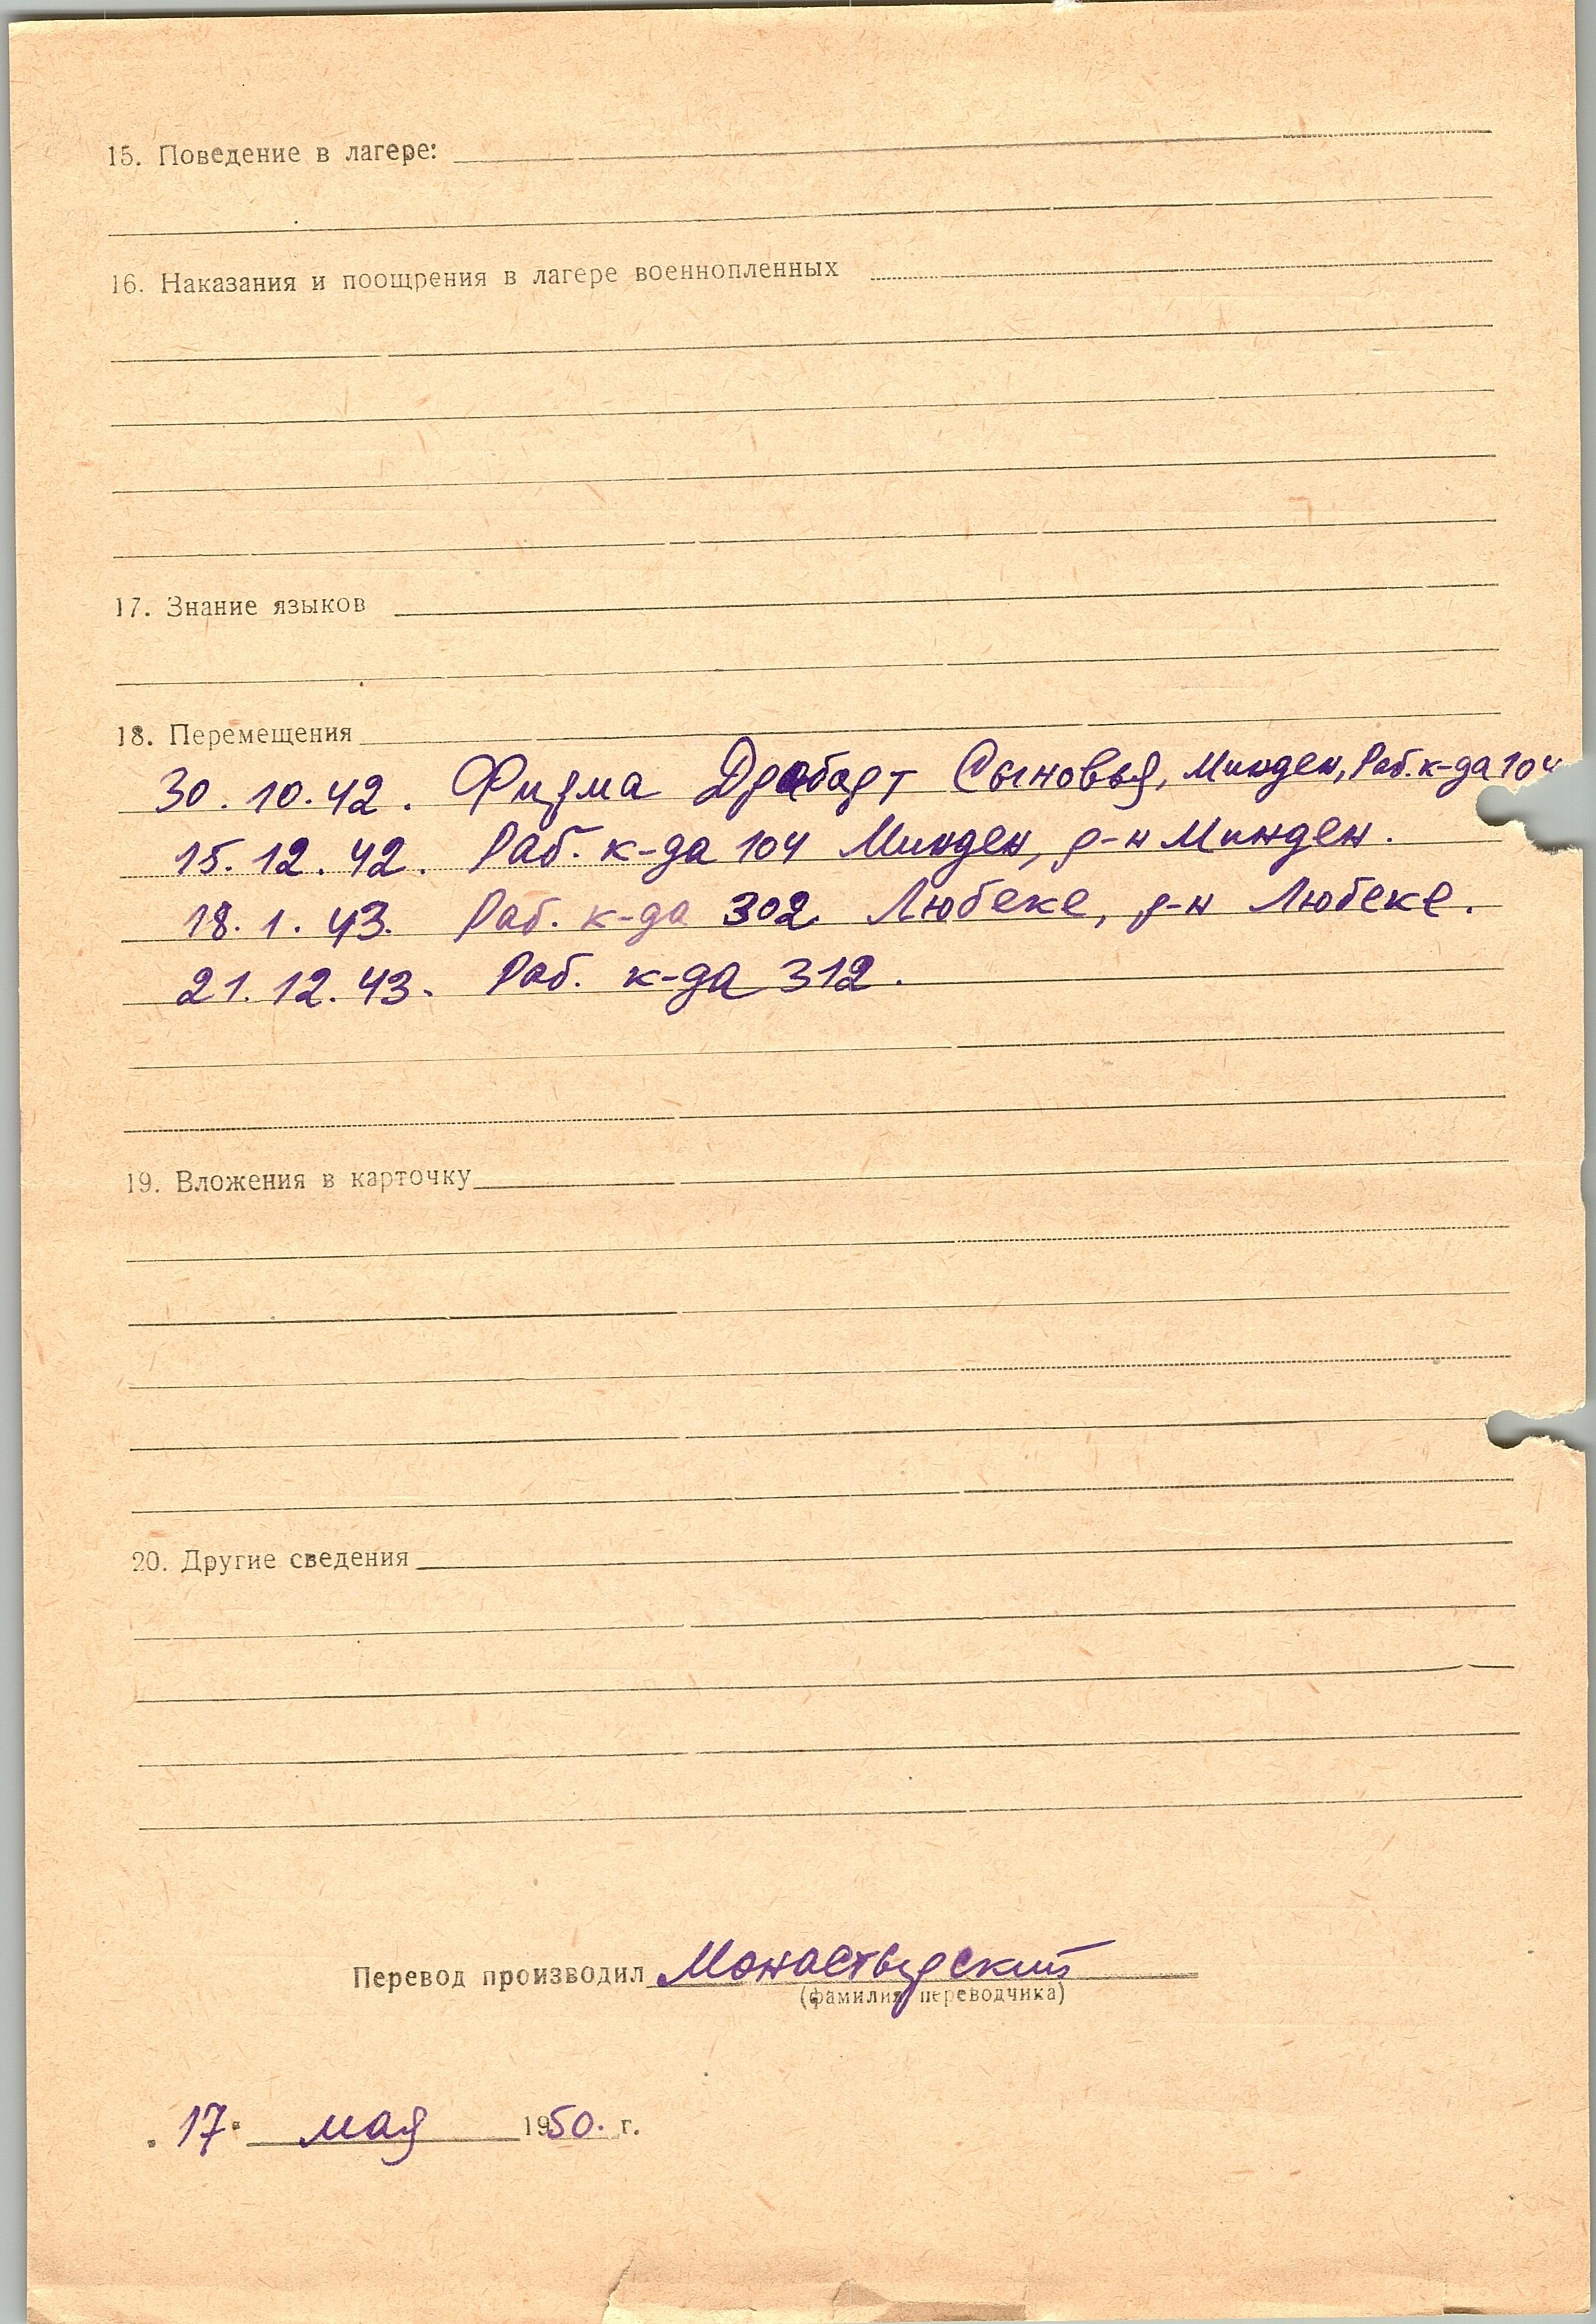 15. Поведение в лагере:
16. Наказания и поощрения в лагере военнопленных
17. Знание языков
18. Перемещения
30.10.42. Фирма Драбарт Сыновья, Минден, Раб. к-да 104
15.12.42. Раб. к-да 104 Минден, р-н Минден.
18.1.43. Раб. к-да 302 Любеке, р-н Любеке.
21.12.43. Раб. к-да 312.
19. Вложения в карточку
20. Другие сведения
Перевод производил Монастырский
(фамилия переводчика)
"17" мая 1950. г.